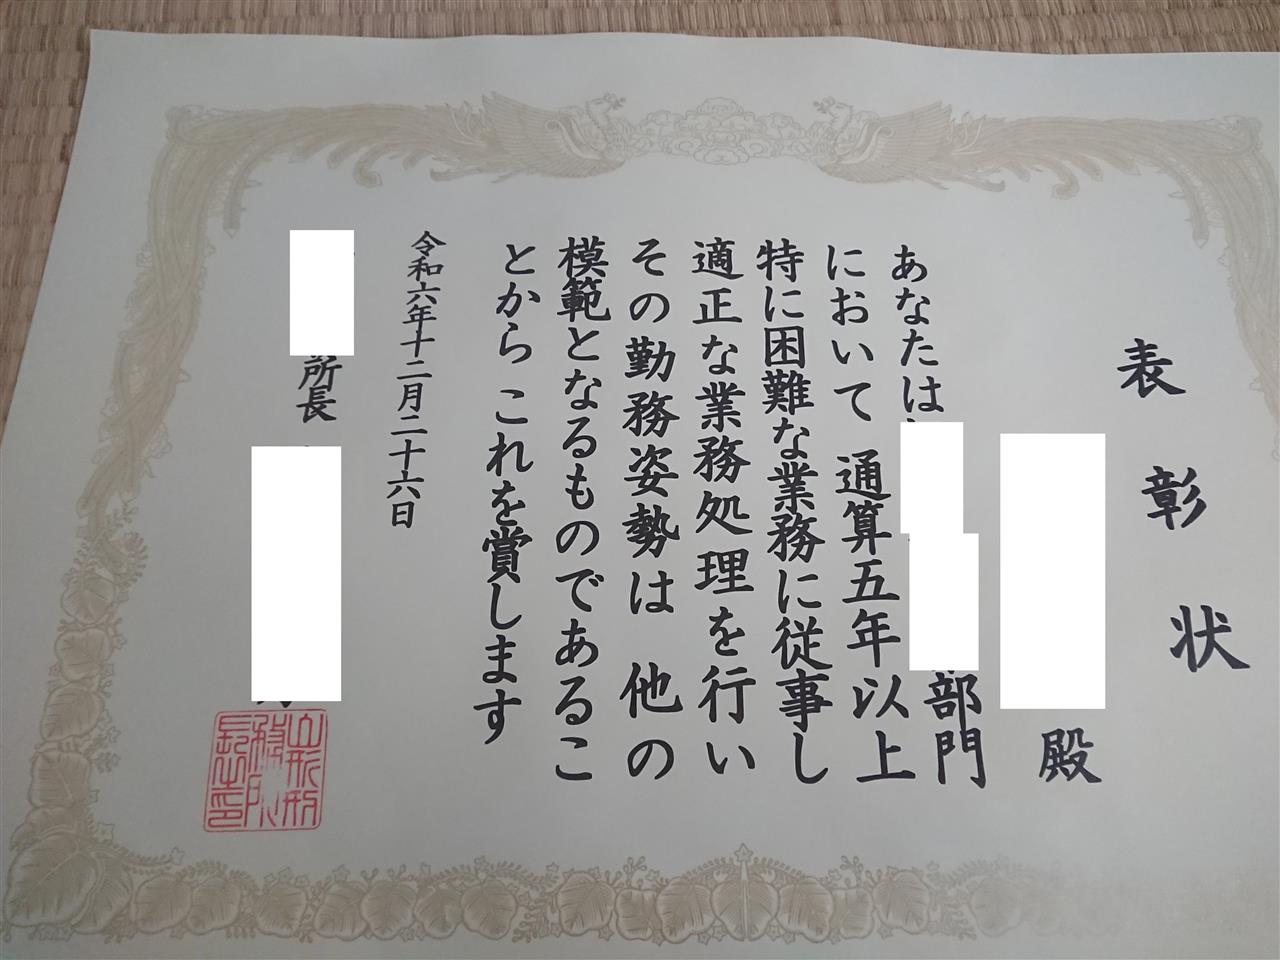 表彰状
殿
あなたは
部門
において 通算五年以上
特に困難な業務に従事し
適正な業務処理を行い
その勤務姿勢は 他の
模範となるものであるこ
とから これを賞します
令和六年十二月二十六日
所長
山形刑
務所
長之印